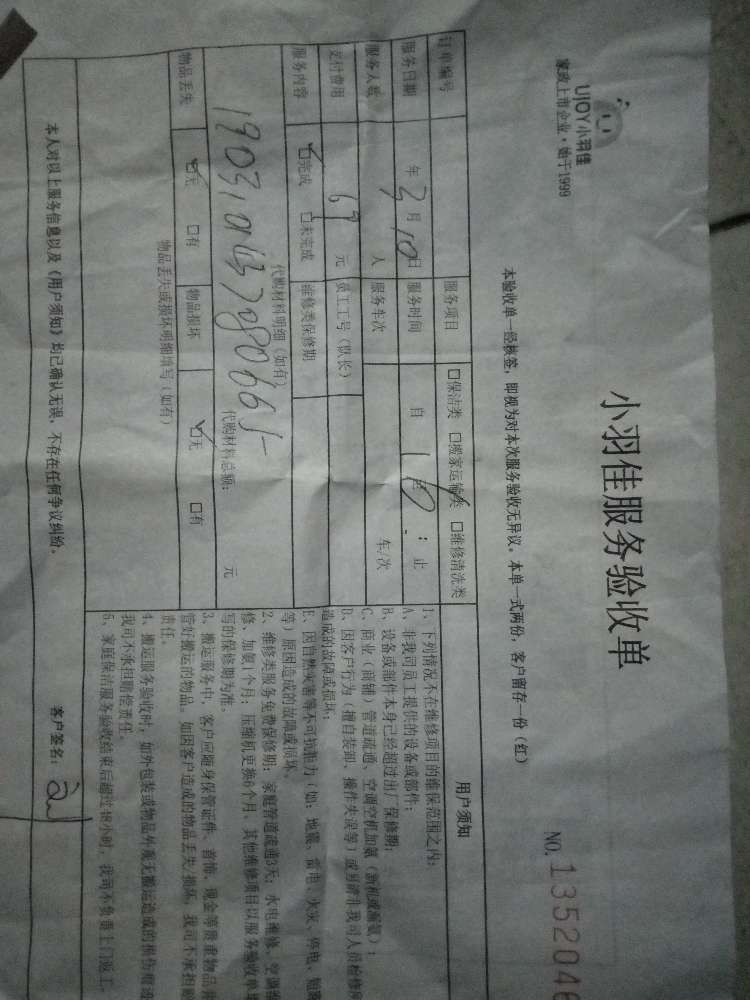 UJOY小羽佳
家政上市企业·始于1999
小羽佳服务验收单
NO.1352046
本验收单一经核签，即视为对本次服务验收无异议。本单一式两份，客户留存一份（红）
订单编号 服务项目 □保洁类 □搬家运输类 □维修清洗类
服务日期 年3月10日 服务时间 自 : 止
服务人数 人 服务车次 车/次
支付费用 69元 员工工号（队长）
服务内容 ☑完成 □未完成 维修类保修期
代购材料明细（如有）
代购材料总额： 元
物品丢失 ☑无 □有 物品损坏 ☑无 □有
物品丢失或损坏明细填写（如有）
用户须知
1、下列情况不在维修项目的维保范围之内：
A、非我司员工提供的设备或部件；
B、设备或部件本身已经超过出厂保修期；
C、商业（商铺）管道疏通、空调空机加氨（新机或漏氨）；
D、因客户行为（擅自装卸、操作失误等）或另请非我司人员检修所
造成的故障或损坏；
E、因自然灾害等不可抗能力（如：地震、雷电、火灾、停电、短路
等）原因造成的故障或损坏。
2、维修类服务免费保修期：家庭管道疏通3天；水电维修、空调维
修、加氨1个月；压缩机更换6个月，其他维修项目以服务验收单填
写的保修期为准。
3、搬运服务中，客户应随身保管证件、首饰、现金等贵重物品并
管好搬运的物品。如因客户造成的物品丢失/损坏，我司不承担赔
责任。
4、搬运服务验收时，如外包装或物品外观无搬运造成的损伤痕迹
我司不承担赔偿责任。
5、家庭保洁服务验收结束后超过48小时，我司不负责上门返工。
本人对以上服务信息以及《用户须知》均已确认无误，不存在任何争议纠纷。 客户签名：